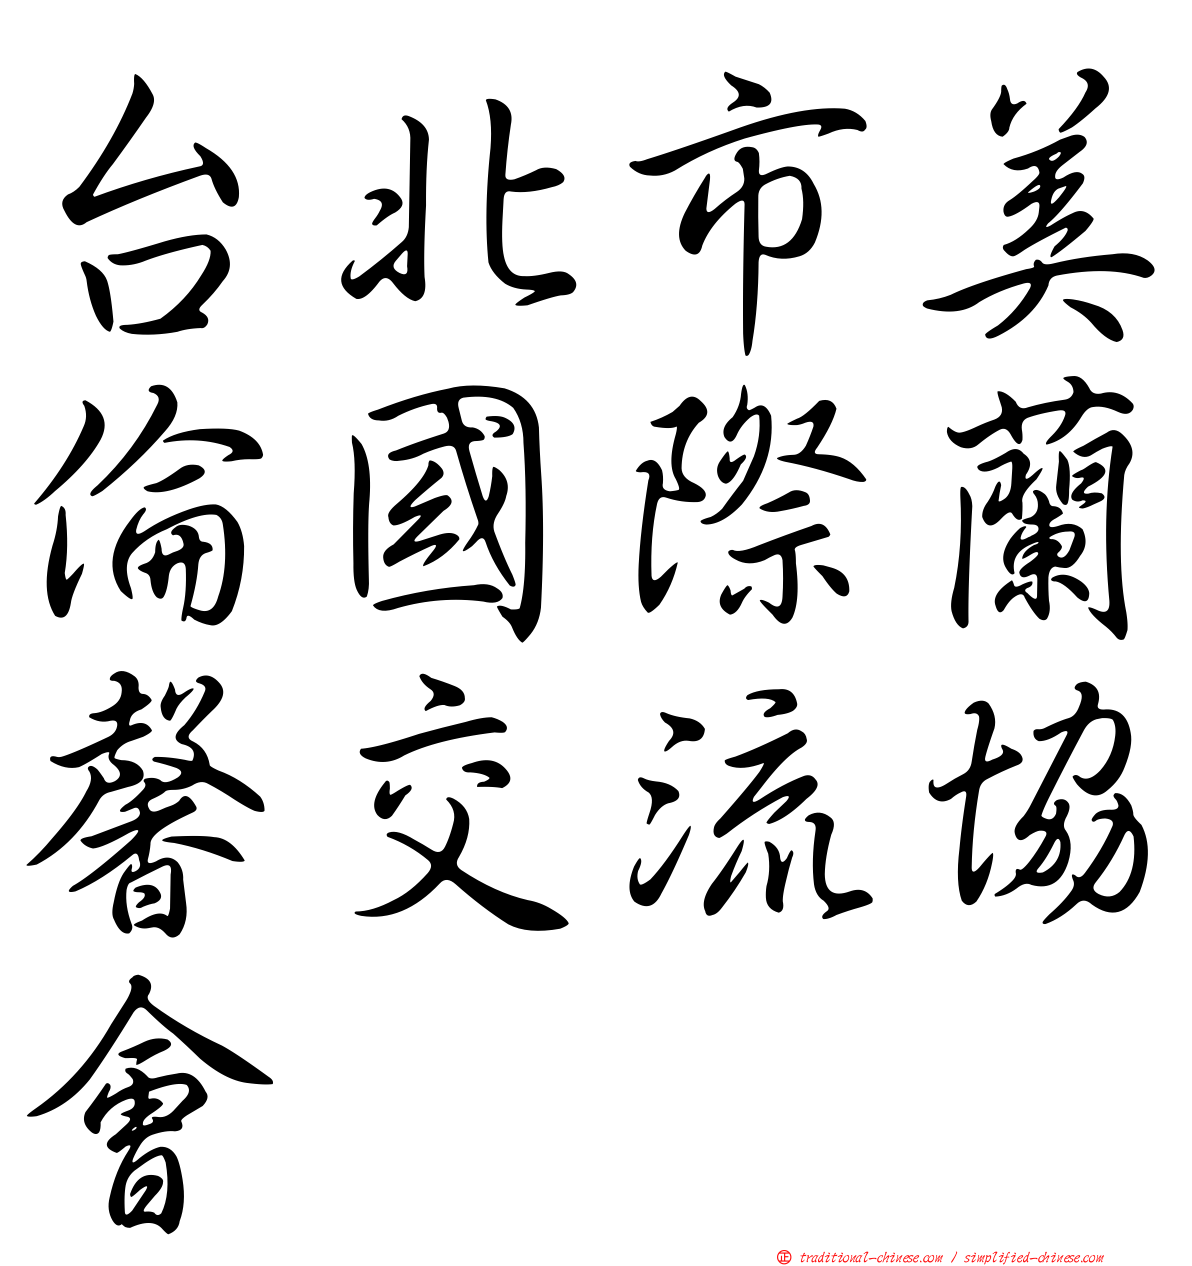 台北市美
倫國際蘭
馨交流協
會
正 traditional-chinese.com / simplified-chinese.com